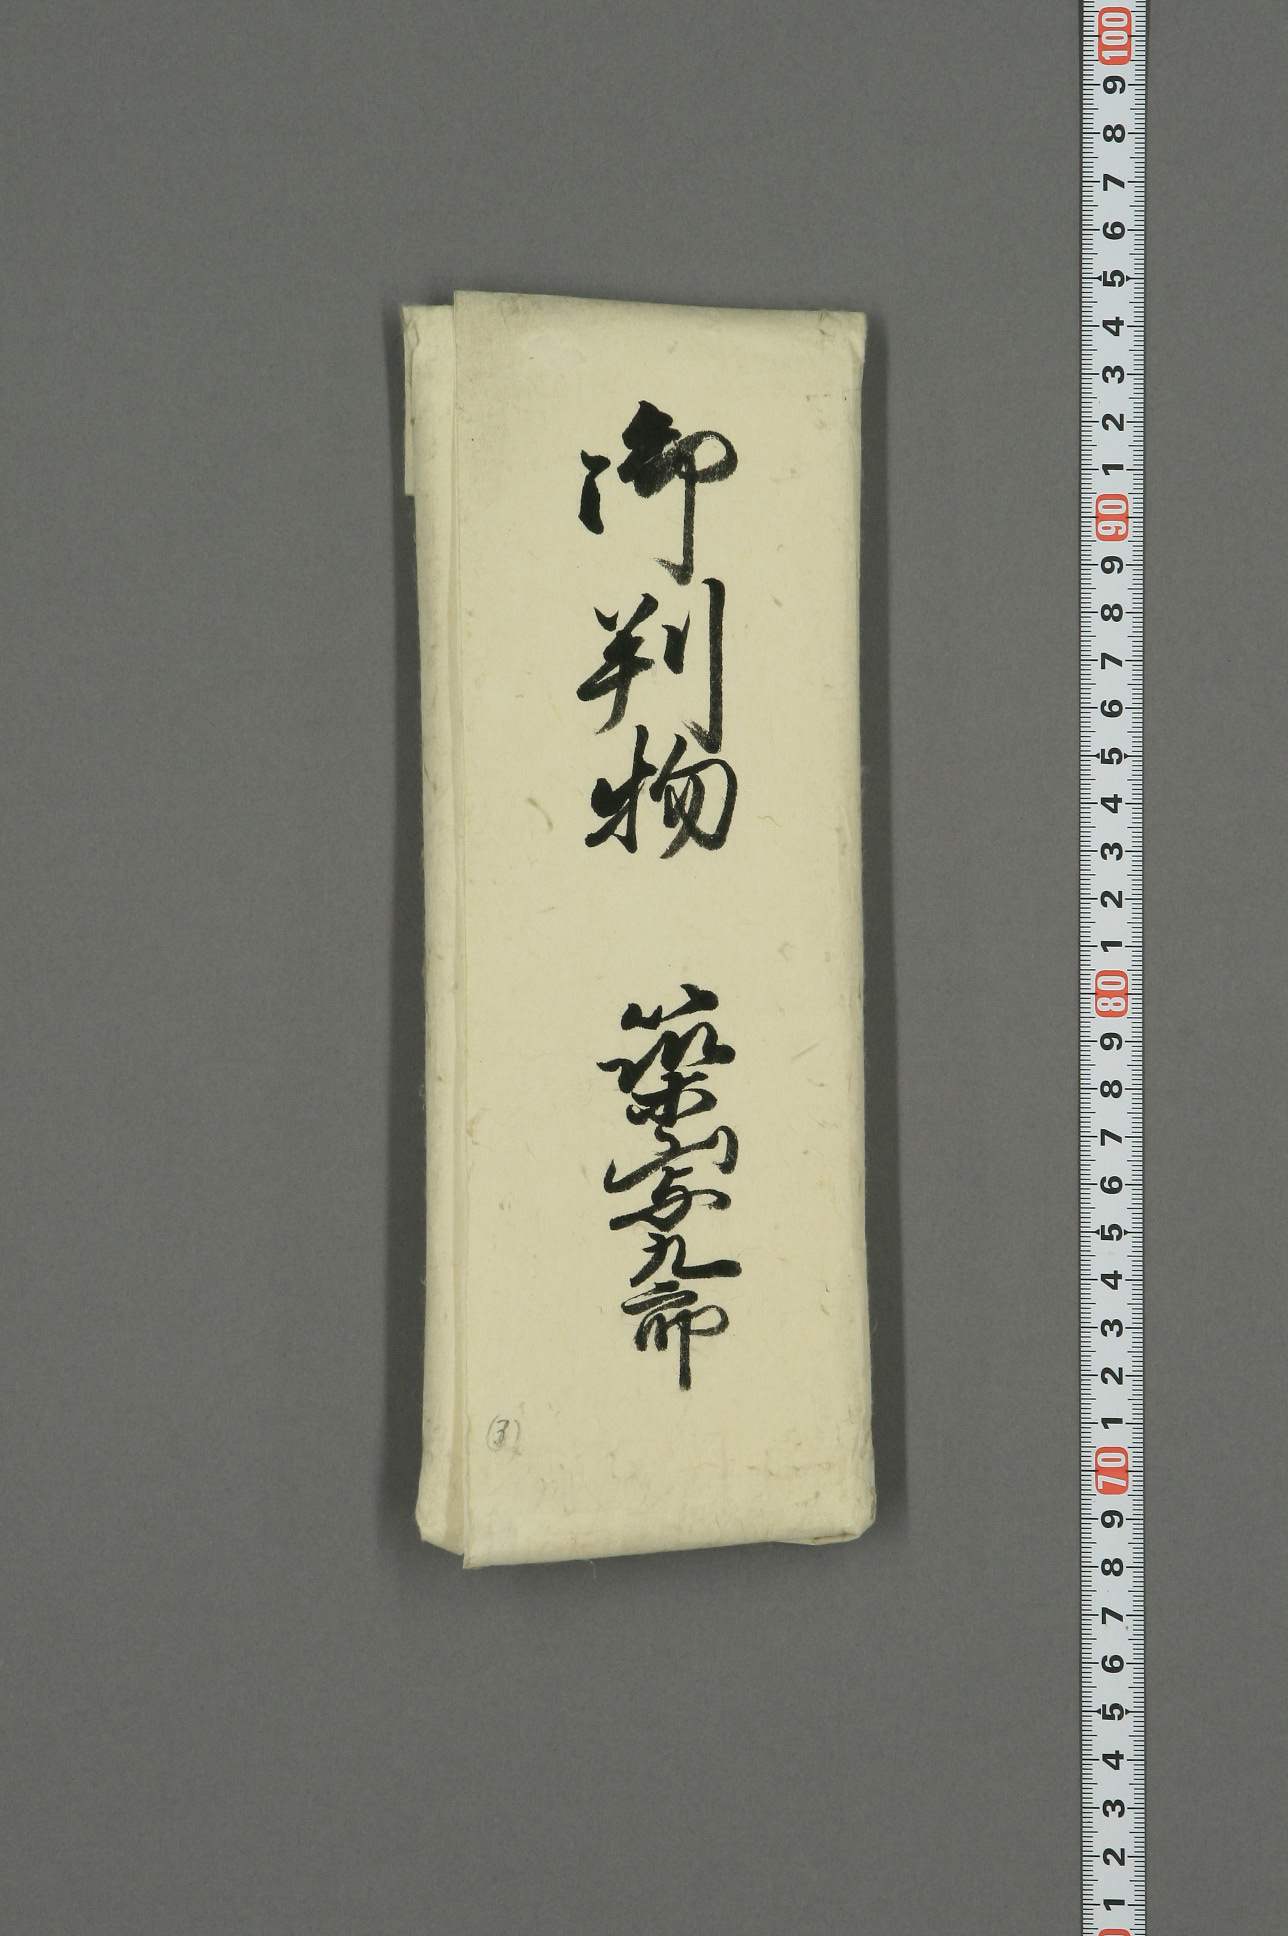 御判物 築山宗九郎
(3)
100
9
8
7
6
5
4
3
2
1
90
9
8
7
6
5
4
3
2
1
80
9
8
7
6
5
4
3
2
1
70
9
8
7
6
5
4
3
2
1